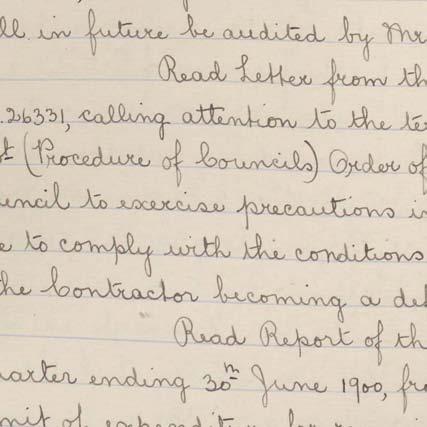 ll in future be audited by Mr
Read Letter from th
.26331, calling attention to the te
t (Procedure of Councils) Order of
uncil to exercise precautions i
e to comply with the conditions
he Contractor becoming a de
Read Report of th
uarter ending 30th June 1900, fr
mit of expenditure for